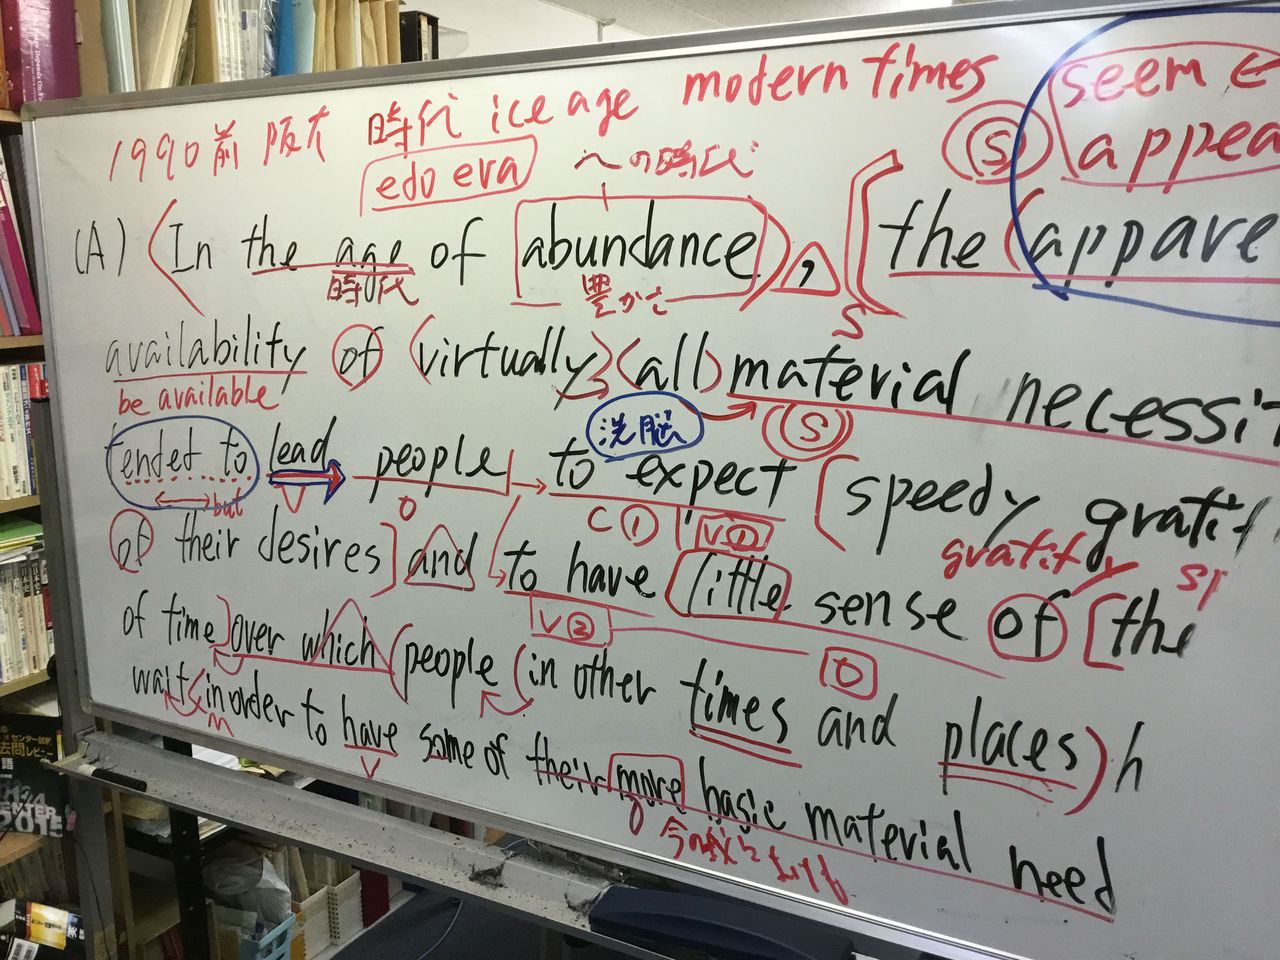 1990前 阪大 時代 ice age modern times
seem
edo era への時代 S appea
(A) (In the age of abundance), [the (appare
時代 豊かさ S
availability of (virtually) (all) material necessit
be available 洗脳 S
tended to lead people to expect (speedy gratif
but V O C① V① gratify
of their desires] and to have little sense of [the
V② O
of time] over which (people (in other times and places) h
wait (in order to have some of their more basic material need
M V O